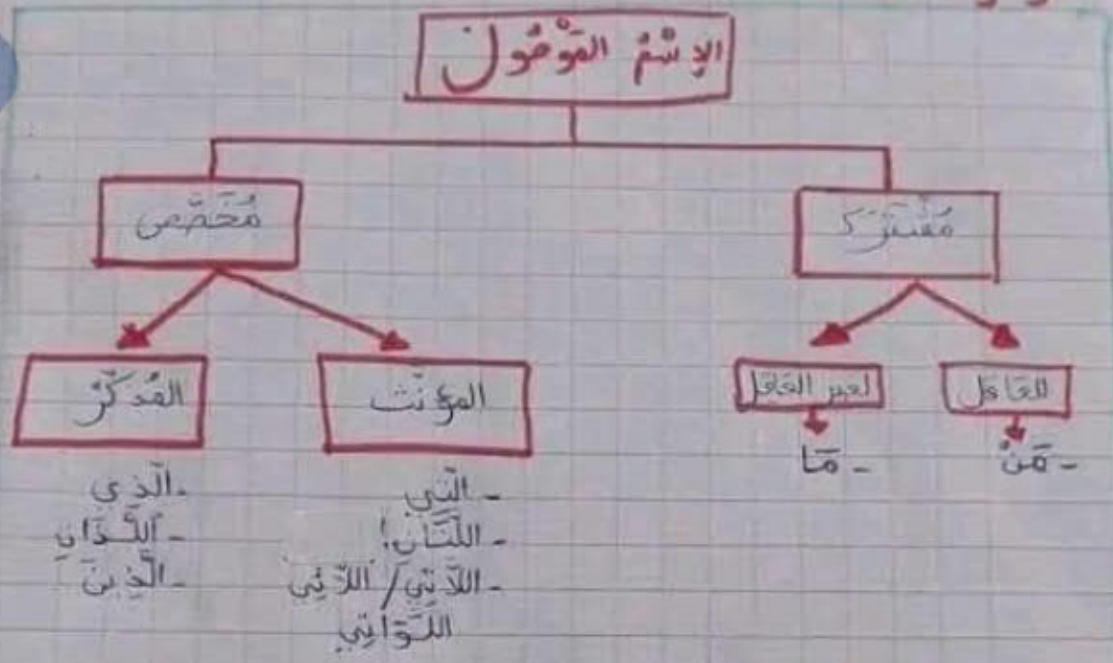 الإِسْمُ المَوْصُول
مُشْتَرَك
مُخَصَّص
للعاقل
لغير العاقل
المؤنّث
المُذكّرُ
- مَنْ
- مَا
- الَّتِي
- اللَّتَانِ
- اللاَّتِي / اللاَّئِي
اللَّوَاتِي
- الَّذِي
- اللَّذَانِ
- الَّذِينَ